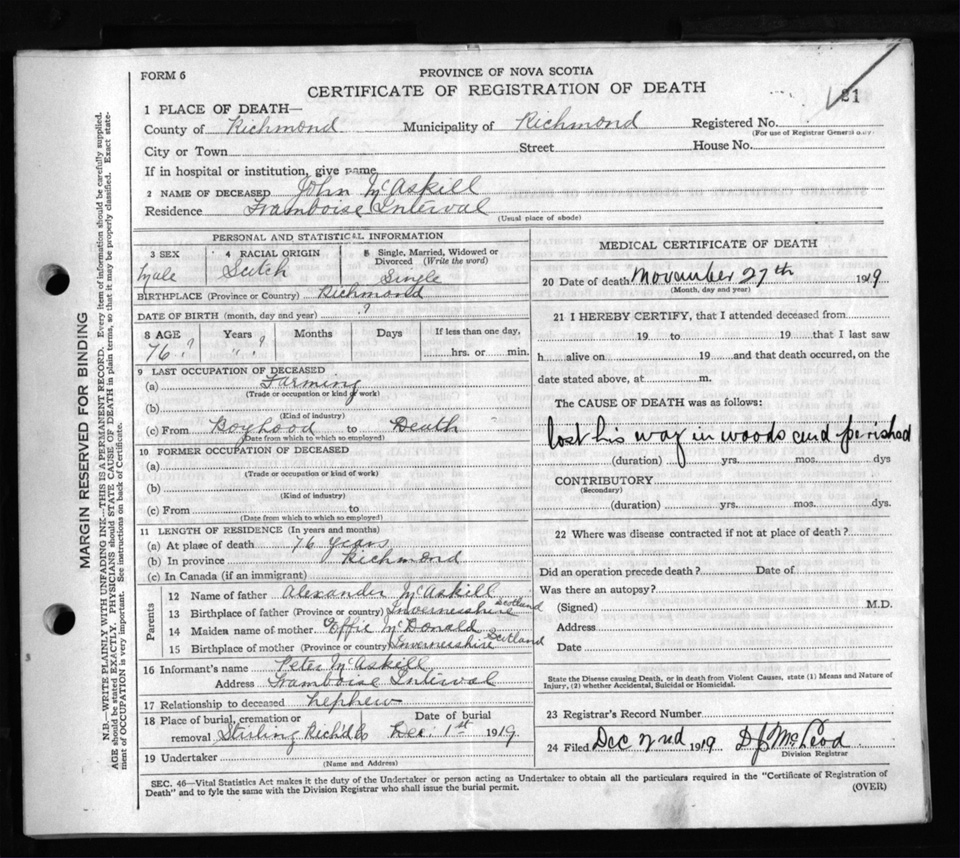 FORM 6
PROVINCE OF NOVA SCOTIA
CERTIFICATE OF REGISTRATION OF DEATH
21
1 PLACE OF DEATH—
County of Richmond Municipality of Richmond Registered No.
(For use of Registrar General only)
City or Town Street House No.
If in hospital or institution, give name
2 NAME OF DECEASED John McAskill
Residence Framboise Interval
(Usual place of abode)
PERSONAL AND STATISTICAL INFORMATION
3 SEX 4 RACIAL ORIGIN 5 Single, Married, Widowed or Divorced (Write the word)
Male Scotch Single
BIRTHPLACE (Province or Country) Richmond
DATE OF BIRTH (month, day and year) ?
8 AGE Years Months Days If less than one day,
76 ? " ? hrs. or min.
9 LAST OCCUPATION OF DECEASED
(a) Farming
(Trade or occupation or kind of work)
(b)
(Kind of industry)
(c) From Boyhood to Death
(Date from which to which so employed)
10 FORMER OCCUPATION OF DECEASED
(a)
(Trade or occupation or kind of work)
(b)
(Kind of industry)
(c) From to
(Date from which to which so employed)
11 LENGTH OF RESIDENCE (In years and months)
(a) At place of death 76 years
(b) In province Richmond
(c) In Canada (if an immigrant)
Parents
12 Name of father Alexander McAskill
13 Birthplace of father (Province or country) Invernesshire Scotland
14 Maiden name of mother Effie McDonald
15 Birthplace of mother (Province or country) Invernesshire Scotland
16 Informant's name Peter McAskill
Address Framboise Interval
17 Relationship to deceased nephew
18 Place of burial, cremation or Date of burial
removal Stirling Richd Co Dec. 1st 1919
19 Undertaker
(Name and Address)
MEDICAL CERTIFICATE OF DEATH
20 Date of death November 27th 1919
(Month, day and year)
21 I HEREBY CERTIFY, that I attended deceased from
19 to 19 that I last saw
h alive on 19 and that death occurred, on the
date stated above, at m.
The CAUSE OF DEATH was as follows:
lost his way in woods and perished
(duration) yrs. mos. dys
CONTRIBUTORY
(Secondary)
(duration) yrs. mos. dys.
22 Where was disease contracted if not at place of death?
Did an operation precede death? Date of
Was there an autopsy?
(Signed) M.D.
Address
Date
State the Disease causing Death, or in death from Violent Causes, state (1) Means and Nature of
Injury, (2) whether Accidental, Suicidal or Homicidal.
23 Registrar's Record Number
24 Filed Dec 2nd 1919 D J McLeod
Division Registrar
SEC. 46—Vital Statistics Act makes it the duty of the Undertaker or person acting as Undertaker to obtain all the particulars required in the "Certificate of Registration of
Death" and to fyle the same with the Division Registrar who shall issue the burial permit.
(OVER)
MARGIN RESERVED FOR BINDING
N.B.—WRITE PLAINLY WITH UNFADING INK—THIS IS A PERMANENT RECORD. Every item of information should be carefully supplied.
AGE should be stated EXACTLY. PHYSICIANS should STATE CAUSE OF DEATH in plain terms, so that it may be properly classified. Exact statement of OCCUPATION is very important. See instructions on back of Certificate.